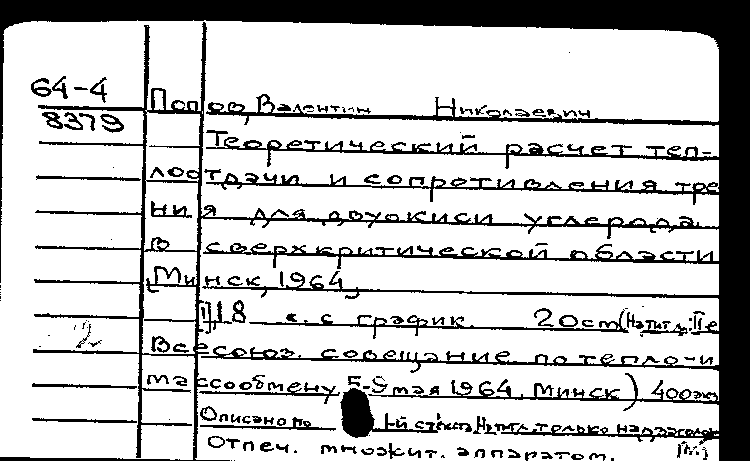 64-4
8379
Попов, Валентин Николаевич
Теоретический расчет теп-
лоотдачи и сопротивления тре
ния для двуокиси углерода
в сверхкритической области
[Минск, 1964,
[1], 18 л. с график. 20 cm (На тит. л.: II е
Всесоюз. совещание по тепло- и
массообмену 5-9 мая 1964, Минск) 400 экз
Описано по 1-й На тит. л. только надзаголов
Отпеч. множит. аппаратом.